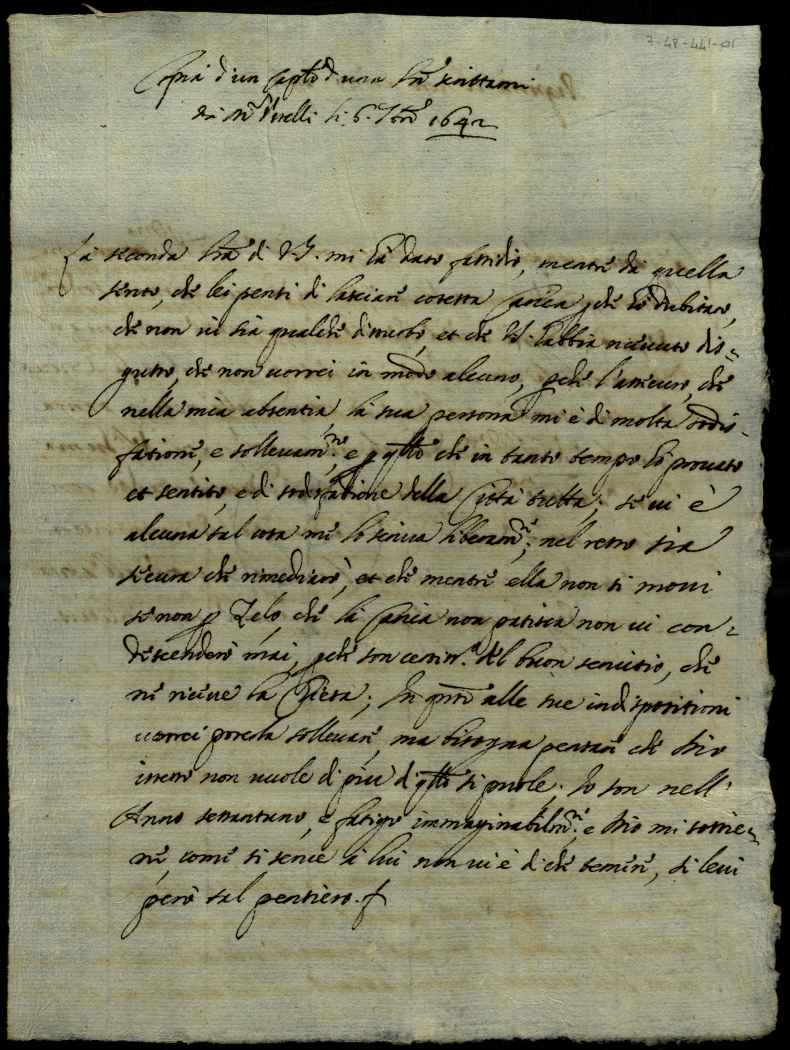 7-48-441-01
Copia d'un capto d'una lra scrittami
da Mr Vitelli li 6. 1642
La seconda lra di VS. mi hà dato fastidio, mentre da quella
sento, che lei pensi di lasciare cotesta Carica, pche hò dubitato,
che non vi sia qualche disturbo, et che VS. habbia ricevuto dis=
gusto, che non vorrei in modo alcuno, pche l'assicuro, che
nella mia absentia, la sua persona mi è di molta sodis-
fatione, e sollevamto, e p qllo che in tanto tempo hò provato
et sentito, e di sodisfatione della Città tutta; se vi è
alcuna tal cosa me lo scriva liberamte; nel resto sia
sicura che rimediarò, et che mentre ella non si movi
se non p Zelo, che la Carica non patisca non vi con=
descenderò mai, pche son certissº del buon servitio, che
ne riceve la Chiesa; In qnto alle sue indispositioni
vorrei poterla sollevare, ma bisogna pensare che Dio
istesso non vuole di più di qllo si puole; Io son nell'
Anno settantuno, e fatigo immaginabilmte; e Dio mi sostie=
ne, come si serve à lui non vi è di che temere, si levi
però tal pensiero.